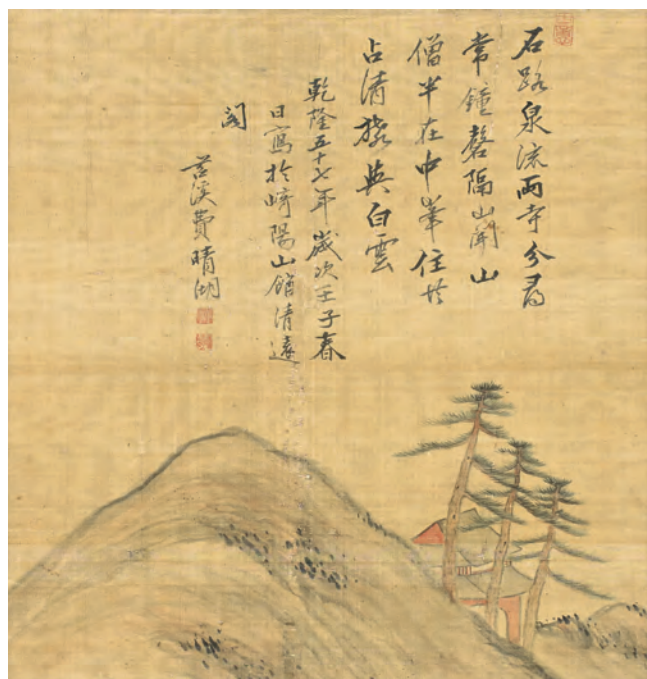 石路泉流兩寺分尋
常鐘磬隔山聞山
僧半在中峯住共
占清猿與白雲
乾隆五十七年歲次壬子春
日寫於崎陽山館清遠
閣
苕溪費晴湖